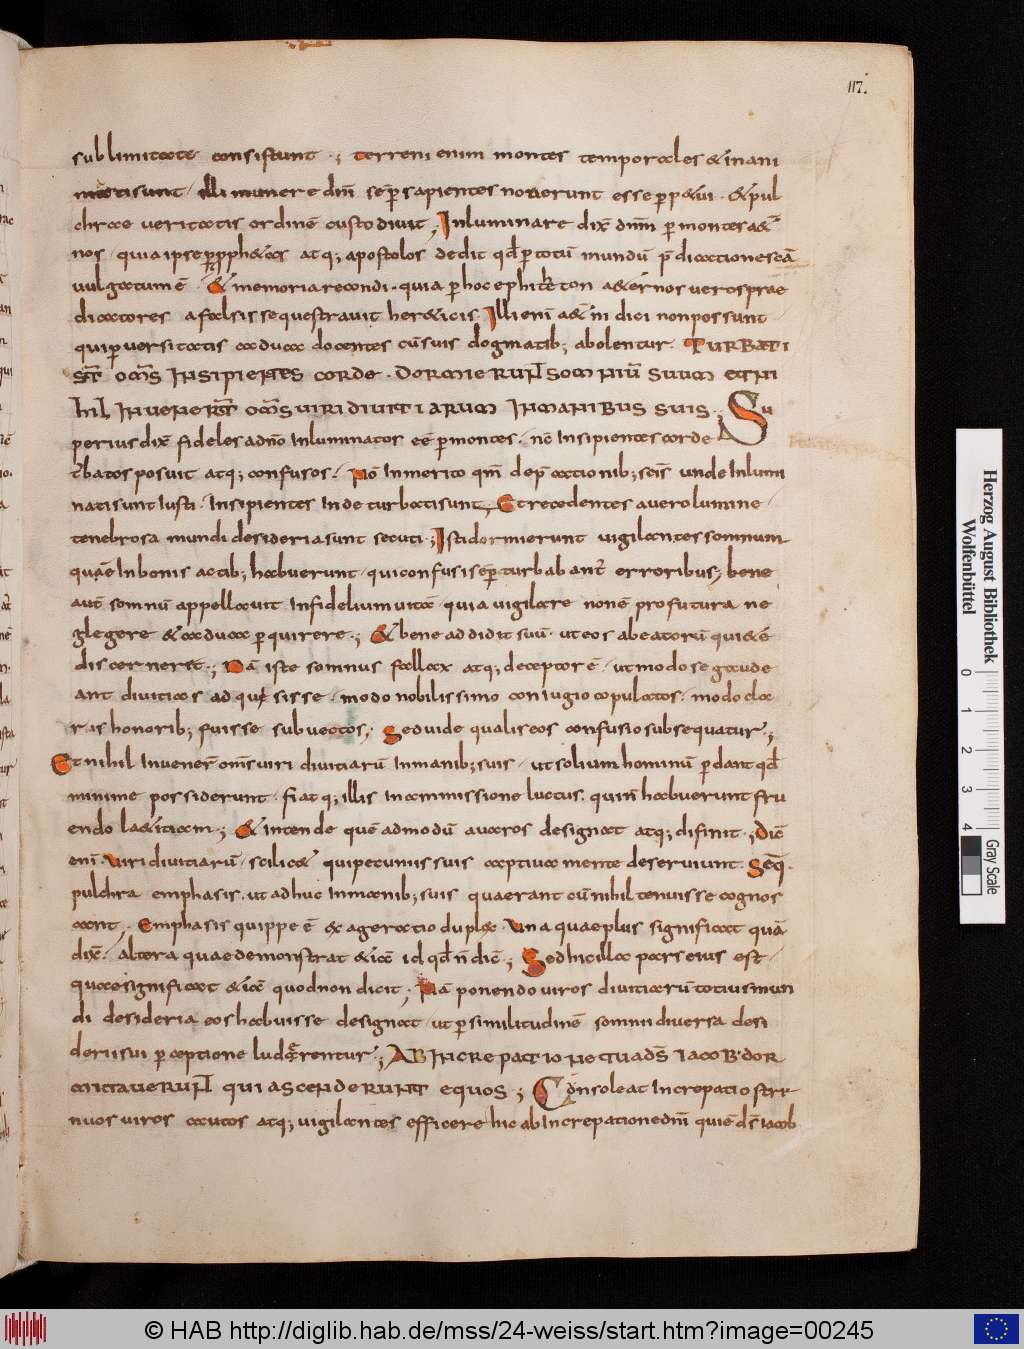 117.
sublimitate consistunt ·; terreni enim montes temporales & inani
tati sunt· illi munere dn̄i sēp sapientes noverunt esse pp&ui · & pul
chrae veritatis ordinē custodiuit; Inluminare dix̄ dn̄m p̄ montes a&̄
nos · quia ipse p p̄ph&as atq; apostolos dedit qd̄ p totū mundū p̄dicatione s̄cā
uulgatum ē · & memoria recondi · quia p̄ hoc ephit&on a&érnos veros prae
dicatores a falsis sequestravit her&icis. Illi enī a&̄ni dici non possunt
qui pversitatis caduca docentes cū suis dogmatib; abolentur. TURBATI
ST̄ OMS̄ INSIPIENTES CORDE · DORMIERUNT SOMNIŪ SUUM ET NI
HIL INVENERT̄ OMS̄ VIRI DIVITIARUM IN MANIBUS SUIS ·; Su
perius dix̄ fideles a dn̄o Inluminatos eē p̄ montes · n̄c Insipientes corde
t̄batos posuit atq; confusos · Nō Inmerito qm̄ dep̄cationib; sc̄īs unde Inlumi
nati sunt Iusti · Insipientes Inde turbati sunt, Et recedentes a vero lumine ·
tenebrosa mundi desideria sunt secuti ·; Isti dormierunt vigilantes somnum
quāe In bonis actib; habuerunt · qui confusi sēp turbabant̄ erroribus, bene
aut̄ somnū appellavit Infidelium uitā quia vigilare non ē profutura ne
glegere & caduca p̄quirere ·; & bene addidit suū · ut eos a beatorū qui&ē
discerneret ·; Nā iste somnus fallax atq; deceptor ē · ut modo se gaude
ant divitias adquęsisse · modo nobilissimo coniugio copulatos · modo cla
ris honorib; fuisse subvectos, · Sed vide qualis eos confusio subsequatur ·;
Et nihil Invener̄ om̄s viri divitiarū In manib; suis · ut solium hominū p̄dant qd̄
minime possiderunt · fi atq; illis In ammissione luctus, qui n̄ habuerunt fru
endo la&itiam ·; & intende quē admodū avaros designat atq; difinit ·; Dic̄
enī · viri divitiarū · scilic& qui pecuniis suis captiva mente deserviunt. Seq̄ ·
pulchra emphasis · ut adhuc In manib; suis quaerant cū nihil tenuisse cognos
cant, · Emphasis quippe ē exageratio dupl& · una quae plus significat quā
dix̄ · altera quae demonstrat &iā id qd̄ n̄ dic̄ ·; Sed hic illa pars eius est ·
quae significat &iā quod non dicit ; Nā ponendo viros divitiarū totius mun
di desideria eos habuisse designat · ut p̄ similitudinē somnii diversa desi
derii sui p̄ceptione luderentur ·; AB INCREPATIONE TUA DS̄ IACOB · DOR
MITAVERUNT QUI ASCENDERUNT EQUOS ; Cōnsoleat Increpatio stre
nuos viros cautos atq; vigilantes efficere hic ab Increpatione dn̄i qui ē ds̄ iacob
Herzog August Bibliothek
Wolfenbüttel
0 1 2 3 4
Gray Scale
© HAB http://diglib.hab.de/mss/24-weiss/start.htm?image=00245